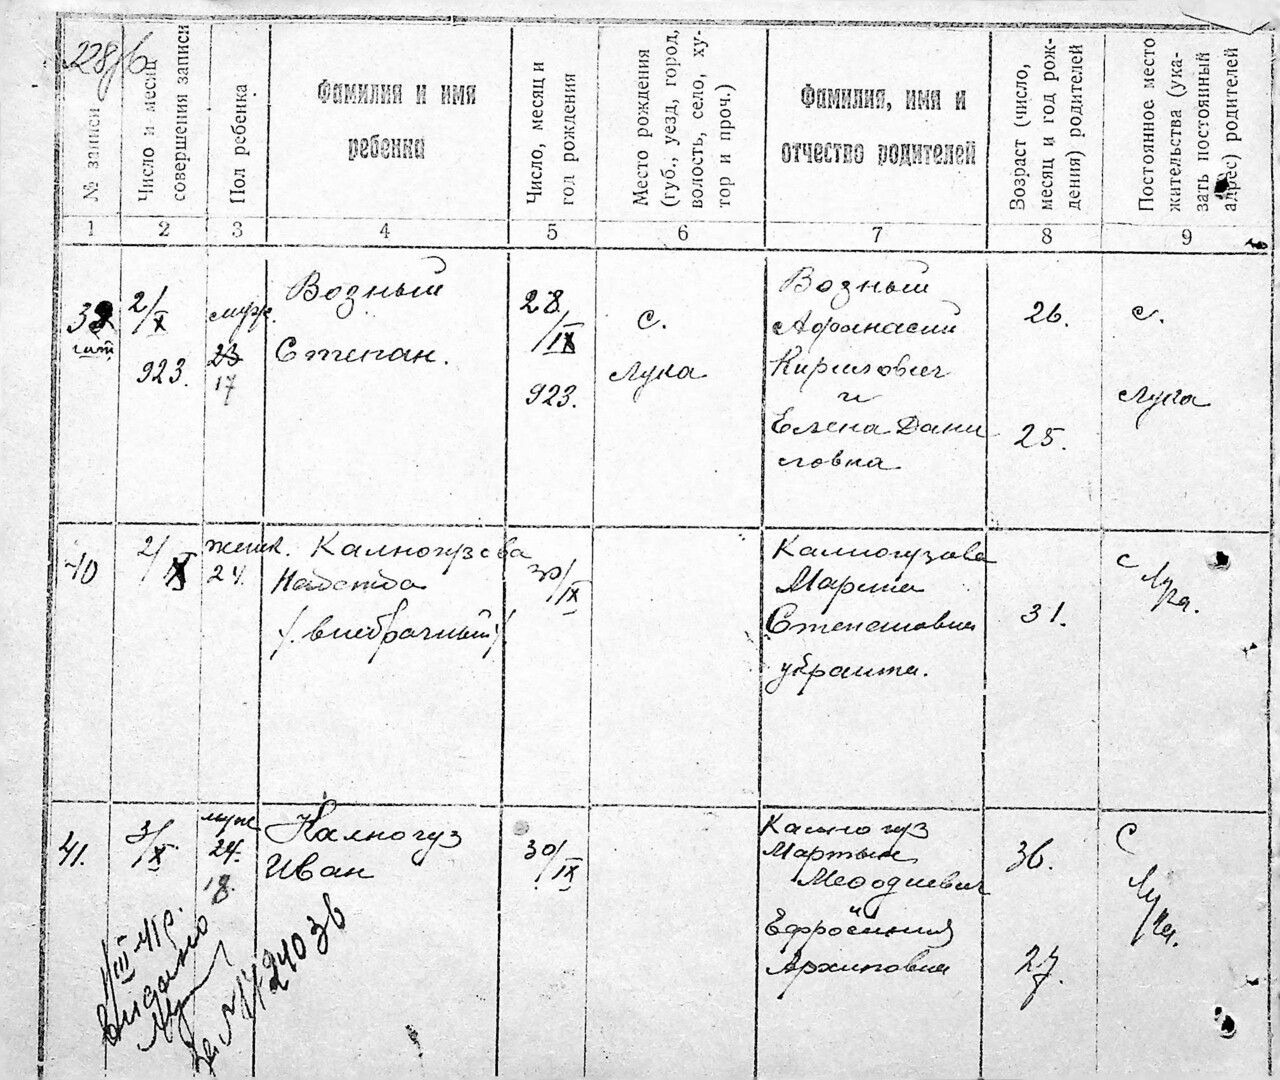 228/б
№ записи
Число и месяц
совершения записи
Пол ребенка
Фамилия и имя
ребенка
Число, месяц и
год рождения
Место рождения
(губ., уезд, город,
волость, село, ху-
тор и проч.)
Фамилия, имя и
отчество родителей
Возраст (число,
месяц и год рож-
дения) родителей
Постоянное место
жительства (ука-
зать постоянный
адрес) родителей
1 2 3 4 5 6 7 8 9
2/X
923.
муж.
23
17
Возный
Степан.
28
/IX
923.
с.
Лука
Возный
Афанасий
Кирилович
и
Елена Дани
ловна
26.
25.
с.
Лука
40
2/X
женск.
24.
Калногузова
Надежда
/. внебрачный /.
30/IX
Калногузова
Марина
Степановна
украинка.
31.
с
Лука.
41.
3/X
муж
24.
18.
Калногуз
Иван
30/IX
Калногуз
Мартын
Мефодиевич
Ефросиния
Архиповна
36.
27.
с
Лука.
III 41 р.
Видано